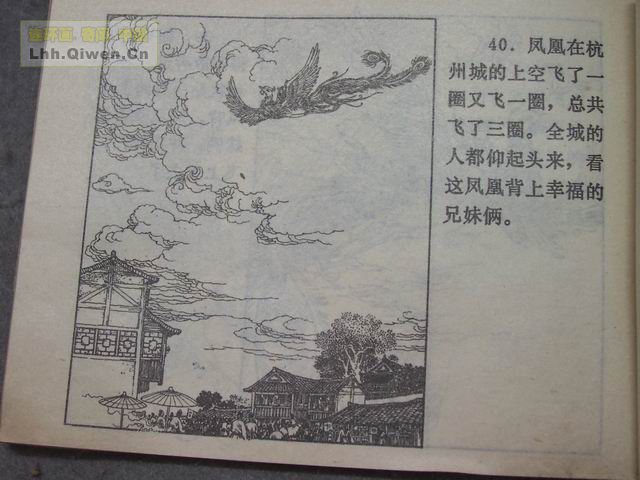 连环画 看阅 平说
Lhh.Qiwen.Cn
40. 凤凰在杭
州城的上空飞了一
圈又飞一圈，总共
飞了三圈。全城的
人都仰起头来，看
这凤凰背上幸福的
兄妹俩。